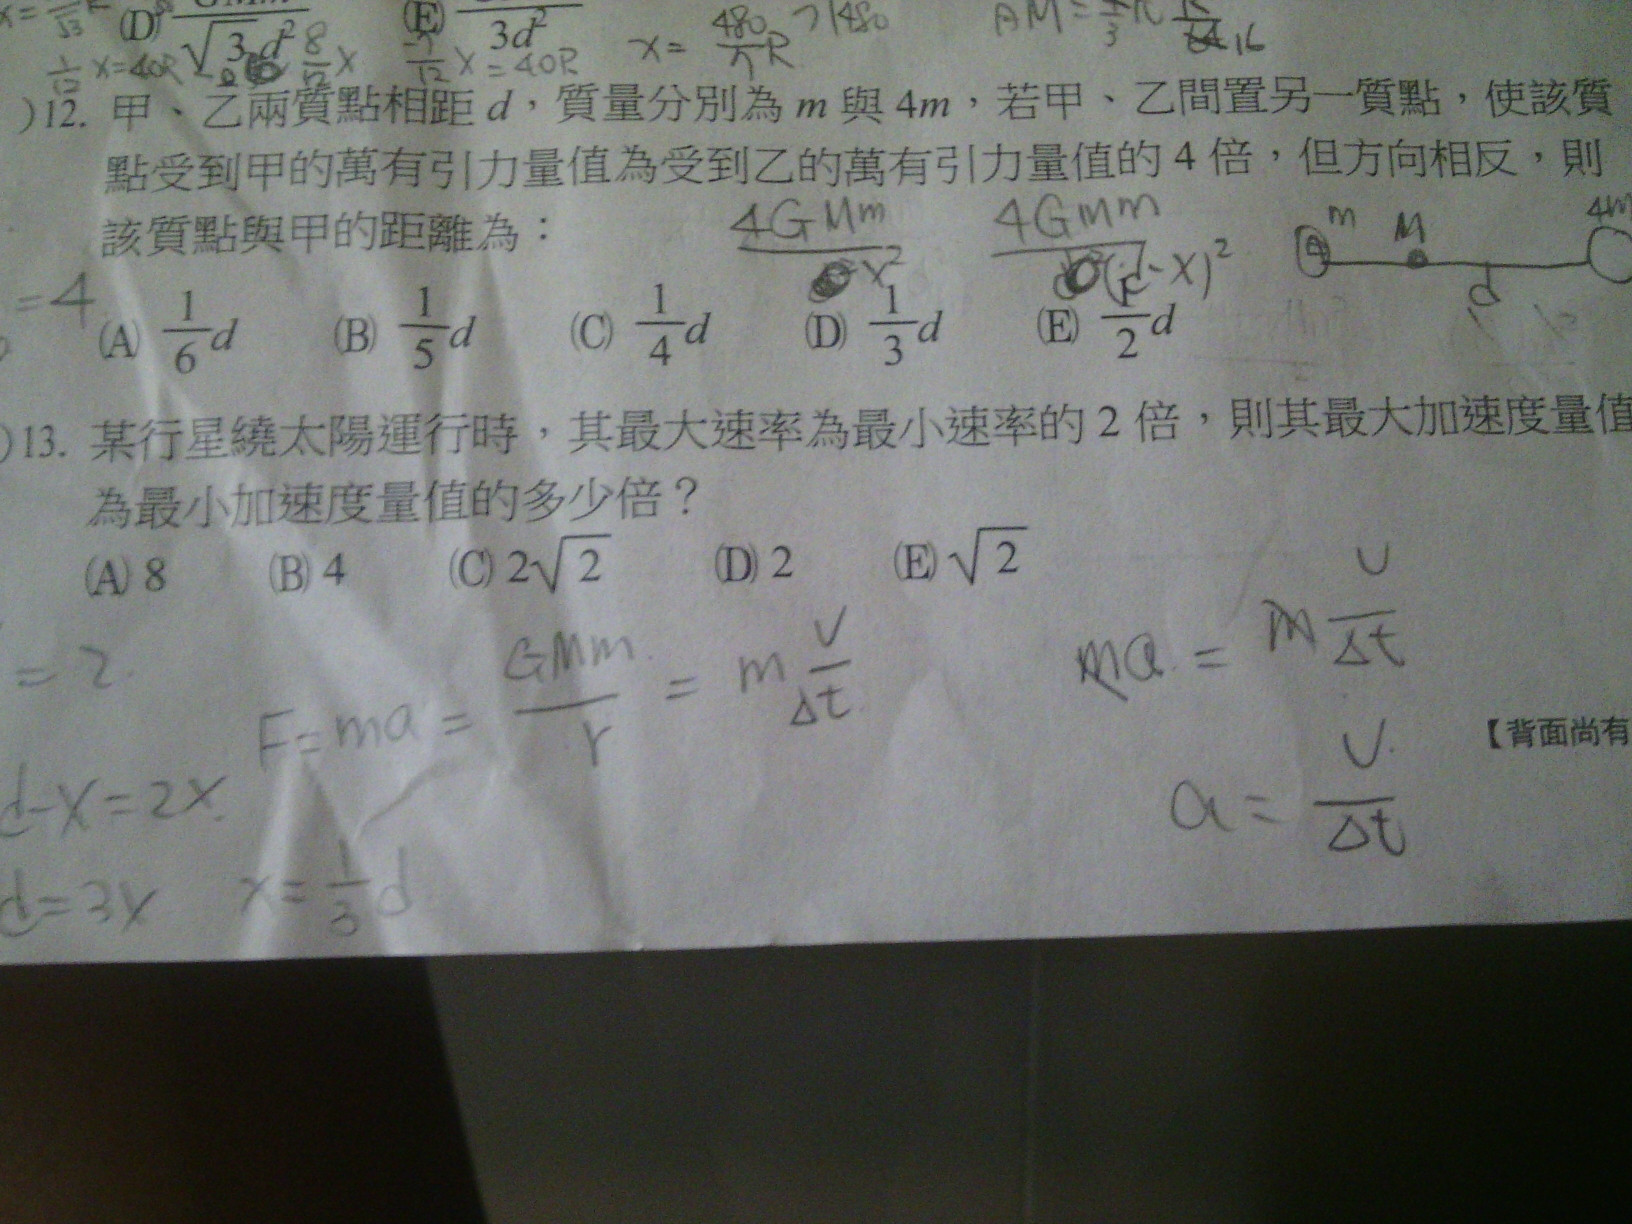 (D) √3 d² (E) 3d²
1/12 x = 40R 8/12 x 7/12 x = 40R x = 480/7 R 7)480
)12. 甲、乙兩質點相距 d，質量分別為 m 與 4m，若甲、乙間置另一質點，使該質
點受到甲的萬有引力量值為受到乙的萬有引力量值的 4 倍，但方向相反，則
該質點與甲的距離為：
4GMm/x² 4GMm/(d-x)² m M 4m d
=4
(A) 1/6 d (B) 1/5 d (C) 1/4 d (D) 1/3 d (E) 1/2 d
)13. 某行星繞太陽運行時，其最大速率為最小速率的 2 倍，則其最大加速度量值
為最小加速度量值的多少倍？
(A) 8 (B) 4 (C) 2√2 (D) 2 (E) √2
= 2
F = ma = GMm/r = m V/Δt
ma = m V/Δt
【背面尚有
d-x=2x
a = V/Δt
d=3x x = 1/3 d